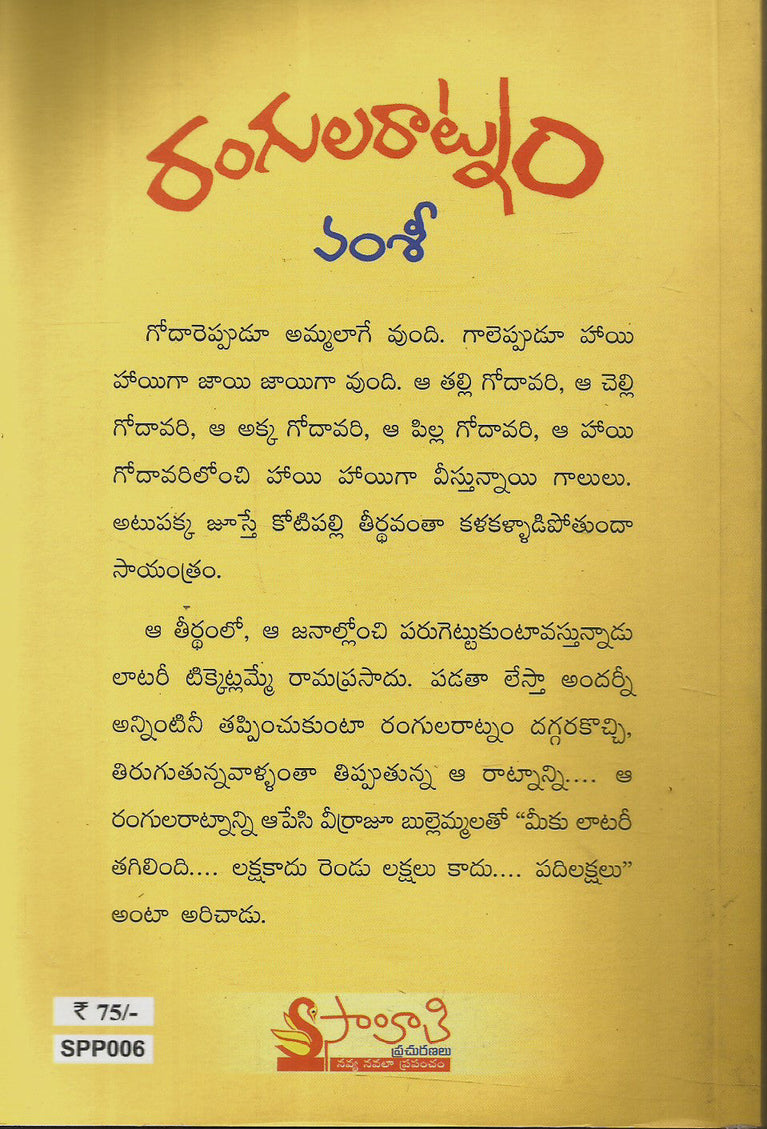 రంగులరాట్నం
వంశీ
గోదారెప్పుడూ అమ్మలాగే వుంది. గాలెప్పుడూ హాయి
హాయిగా జాయి జాయిగా వుంది. ఆ తల్లి గోదావరి, ఆ చెల్లి
గోదావరి, ఆ అక్క గోదావరి, ఆ పిల్ల గోదావరి, ఆ హాయి
గోదావరిలోంచి హాయి హాయిగా వీస్తున్నాయి గాలులు.
అటుపక్క జూస్తే కోటిపల్లి తీర్థవంతా కళకళ్ళాడిపోతుందా
సాయంత్రం.
ఆ తీర్థంలో, ఆ జనాల్లోంచి పరుగెట్టుకుంటావస్తున్నాడు
లాటరీ టిక్కెట్లమ్మే రామప్రసాదు. పడతా లేస్తా అందర్నీ
అన్నింటినీ తప్పించుకుంటా రంగులరాట్నం దగ్గరకొచ్చి,
తిరుగుతున్నవాళ్ళంతా తిప్పుతున్న ఆ రాట్నాన్ని.... ఆ
రంగులరాట్నాన్ని ఆపేసి వీర్రాజూ బుల్లెమ్మలతో “మీకు లాటరీ
తగిలింది.... లక్షకాదు రెండు లక్షలు కాదు.... పదిలక్షలు”
అంటా అరిచాడు.
₹ 75/-
SPP006
ప్రచురణలు
నవ్య నవలా ప్రపంచం